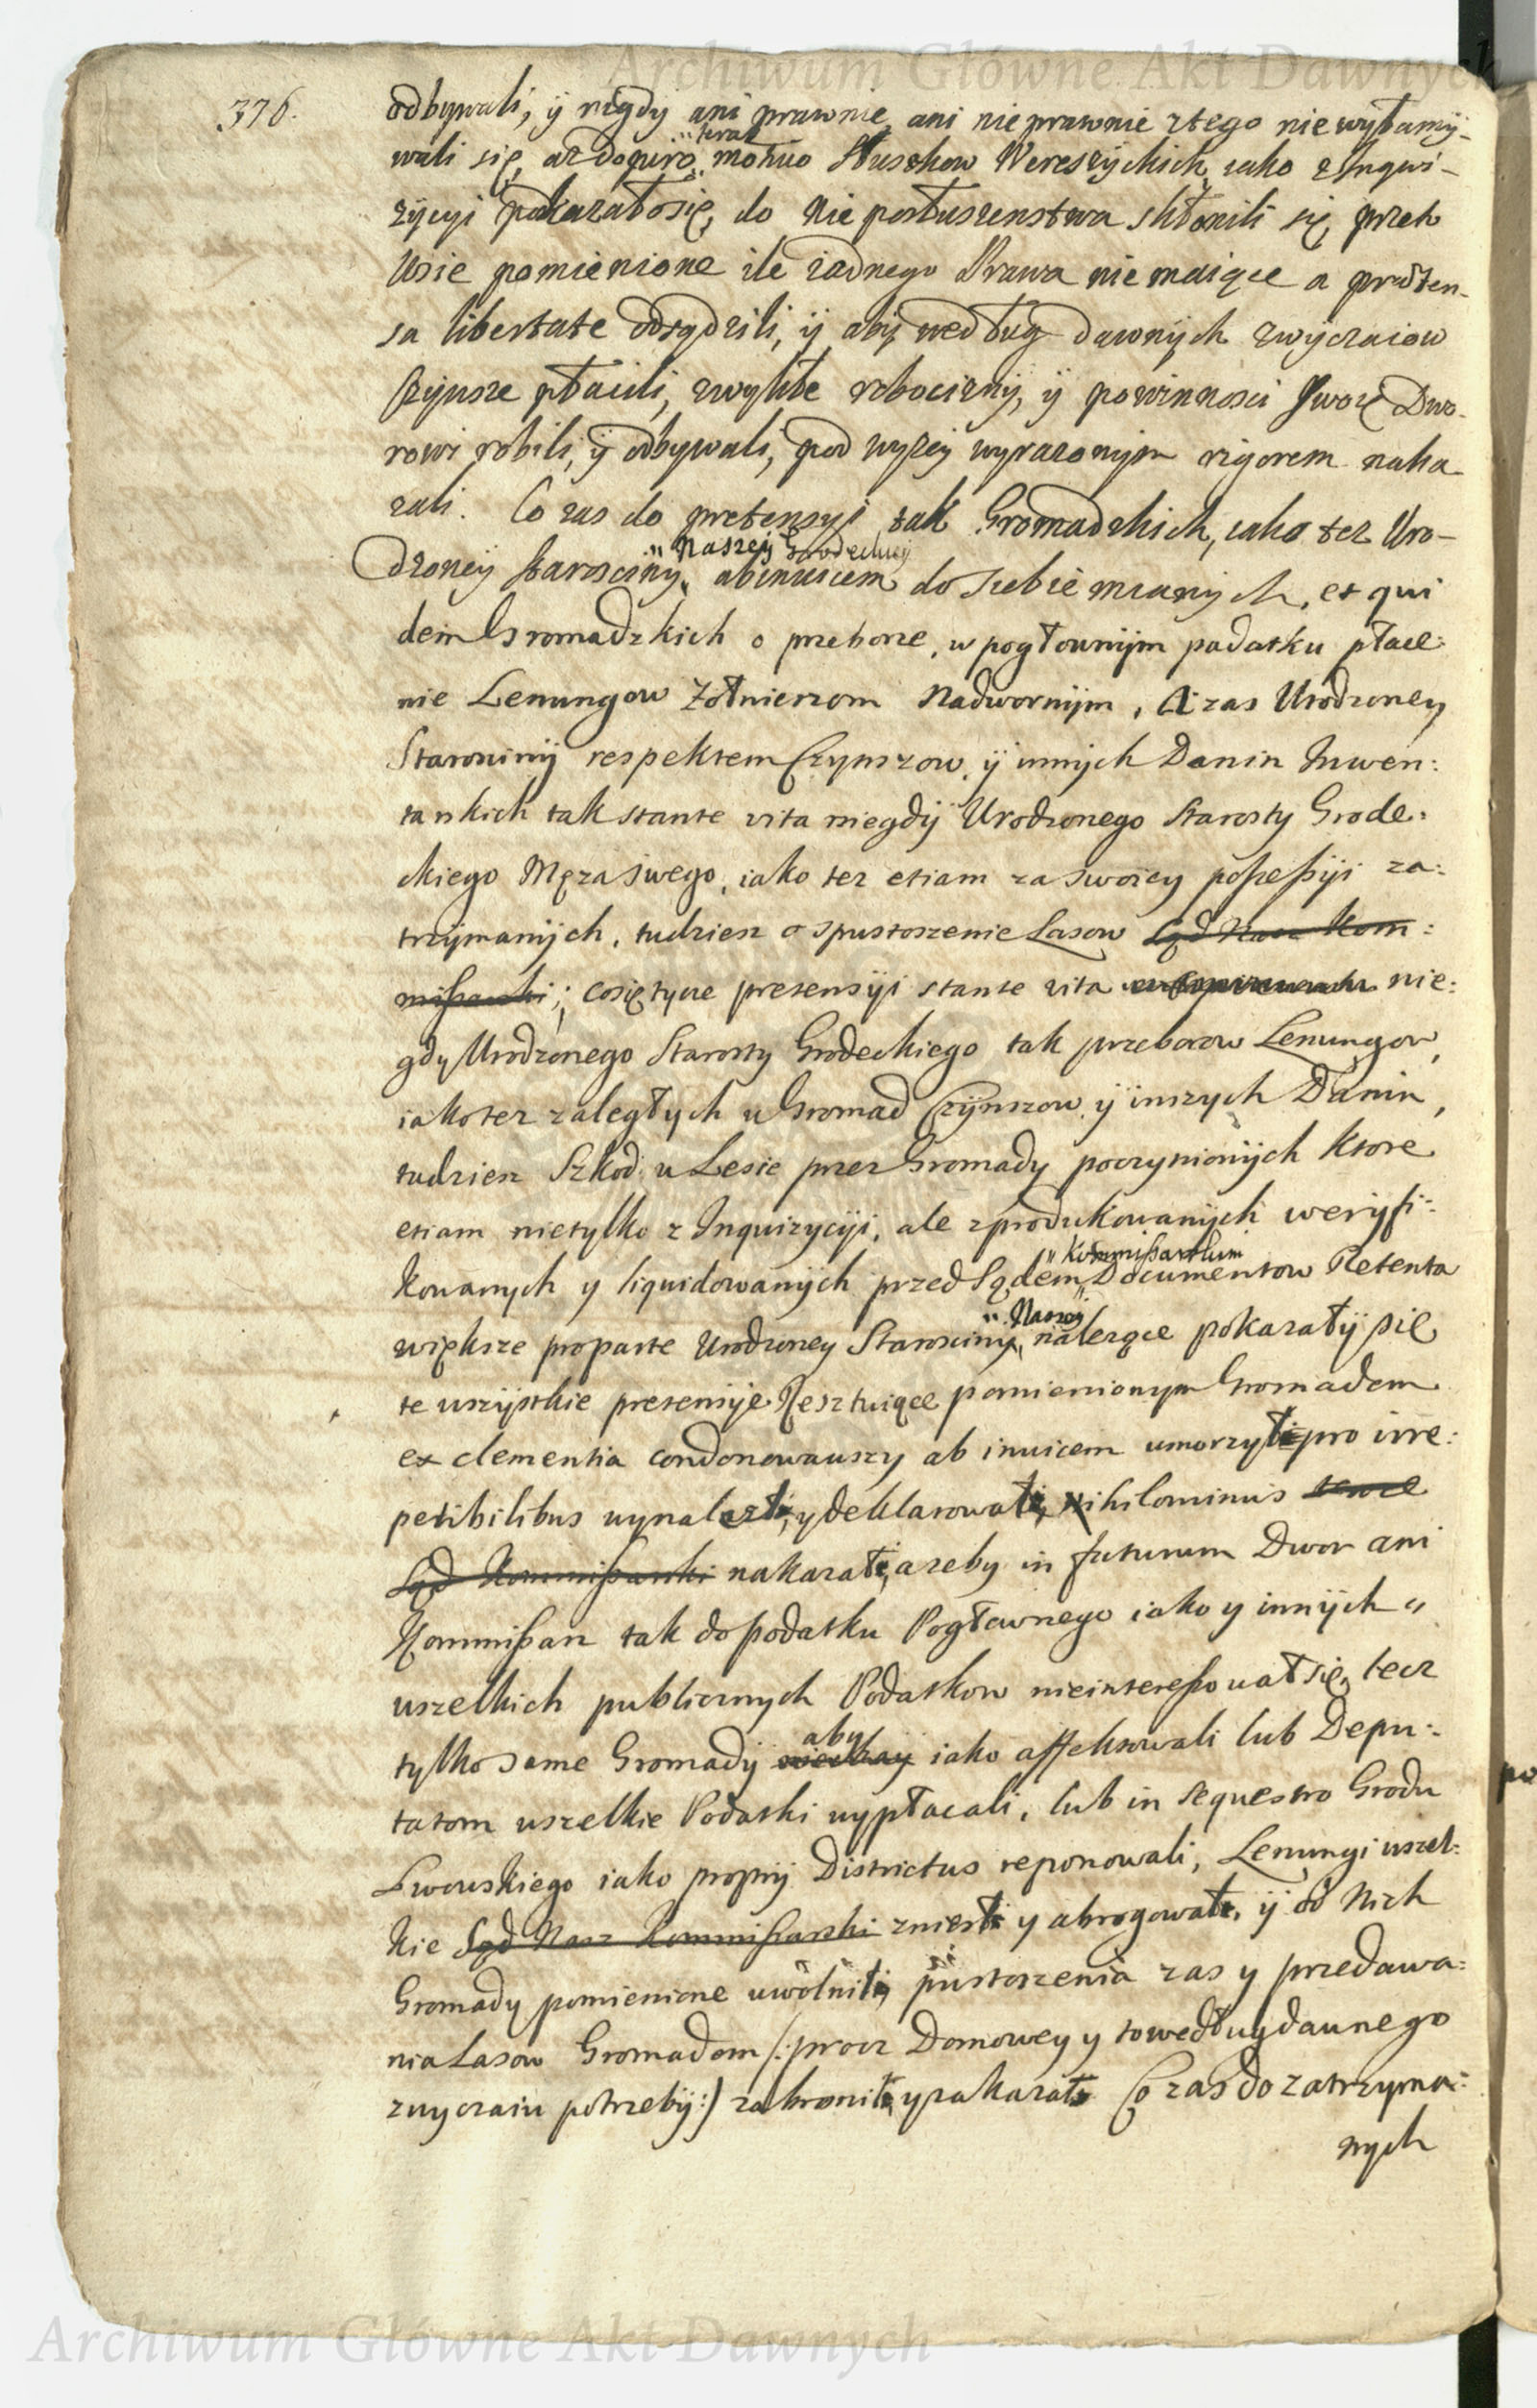 Archiwum Główne Akt Dawnych
376.
odbywali, ÿ nigdy ani prawnie, ani nieprawnie ztego nie wyłamÿ-
wali się, aż dopiro „teraz„ motuo Słuszkow Wereszyckich, iako z Inqwi-
zÿcyi pokazało się, do Nie posłuszenstwa skłonili się, przeto
Wsie pomienione ile żadnego Prawa nie maiące a præten-
sa libertate odsądzili, ÿ abÿ według dawnÿch zwÿczaiow
Czÿnsze płacili, zwykłe robociznÿ, ÿ powinnosci Swoie Dwo-
rowi robili, ÿ odbywali, pod wyżey wyrażonÿm rigorem naka-
zali. Co zas do pretensyi tak Gromadzkich, iako tez Uro-
dzoneÿ Starosciny „Naszeÿ Grodeckieÿ abinuicem do siebie mianÿch, et qui
dem Gromadzkich o przeborze, w pogłownÿm padatku płace:
nie Lenungow Żołnierzom Nadwornÿm, A zas Urodzoney
Starosciny respektem Czynszow, ÿ innÿch Danin Inwen:
tarskich tak stante vita niegdÿ Urodzonego Starosty Grode:
ckiego Męża Swego, iako tez etiam za swoiey possessÿi za:
trzÿmanÿch, tudziesz o spustoszenie Lasow Sąd Nasz Kom:
missarski; co się tycze pretensÿi stante vita nie:
gdy Urodzonego Starosty Grodeckiego tak przeborow Lenungow,
iako tez zaległych u Gromad Czÿnszow, ÿ inszych Danin,
tudziesz Szkod w Lesie przez Gromady poczynionÿch ktore
etiam nietylko z Inquizycÿi, ale zprodukowanÿch werÿfi:
kowanych y liquidowanÿch przed Sądem „Kommissarskim„ Documentow Retenta
większe proparte Urodzoney Starosciny „Naszeÿ„ należące pokazałÿ się
te wszÿstkie pretensÿe Resztuiące pomienionym Gromadom
ex clementia condonowawszy ab inuicem umorzyli pro irre:
petibilibus wynalezli, y deklarowali, Nihilominus tenze
Sąd Kommissarski nakazali, azeby in futurum Dwor ani
Kommissarz tak do podatku Pogłownego iako y innÿch
wszelkich publicznych Podatkow nieinteressował się, lecz
tylko same Gromadÿ niechay aby iako assekowali lub Depu:
tatom wszelkie Podatki wypłacali, lub in sequestro Grodu
Lwowskiego iako proprÿ Districtus reponowali, Lenungi wszel:
kie Sąd Nasz Kommissarski zniesli y abrogowali, ÿ od Nich
Gromady pomienione uwolnili, pustoszenia zas y przedawa:
nia Lasow Gromadom /: procz Domowey y to według dawnego
zwyczaiu potrzebÿ :/ zabronili, y zakazali Co zas do zatrzyma:
nych
po
Archiwum Główne Akt Dawnych